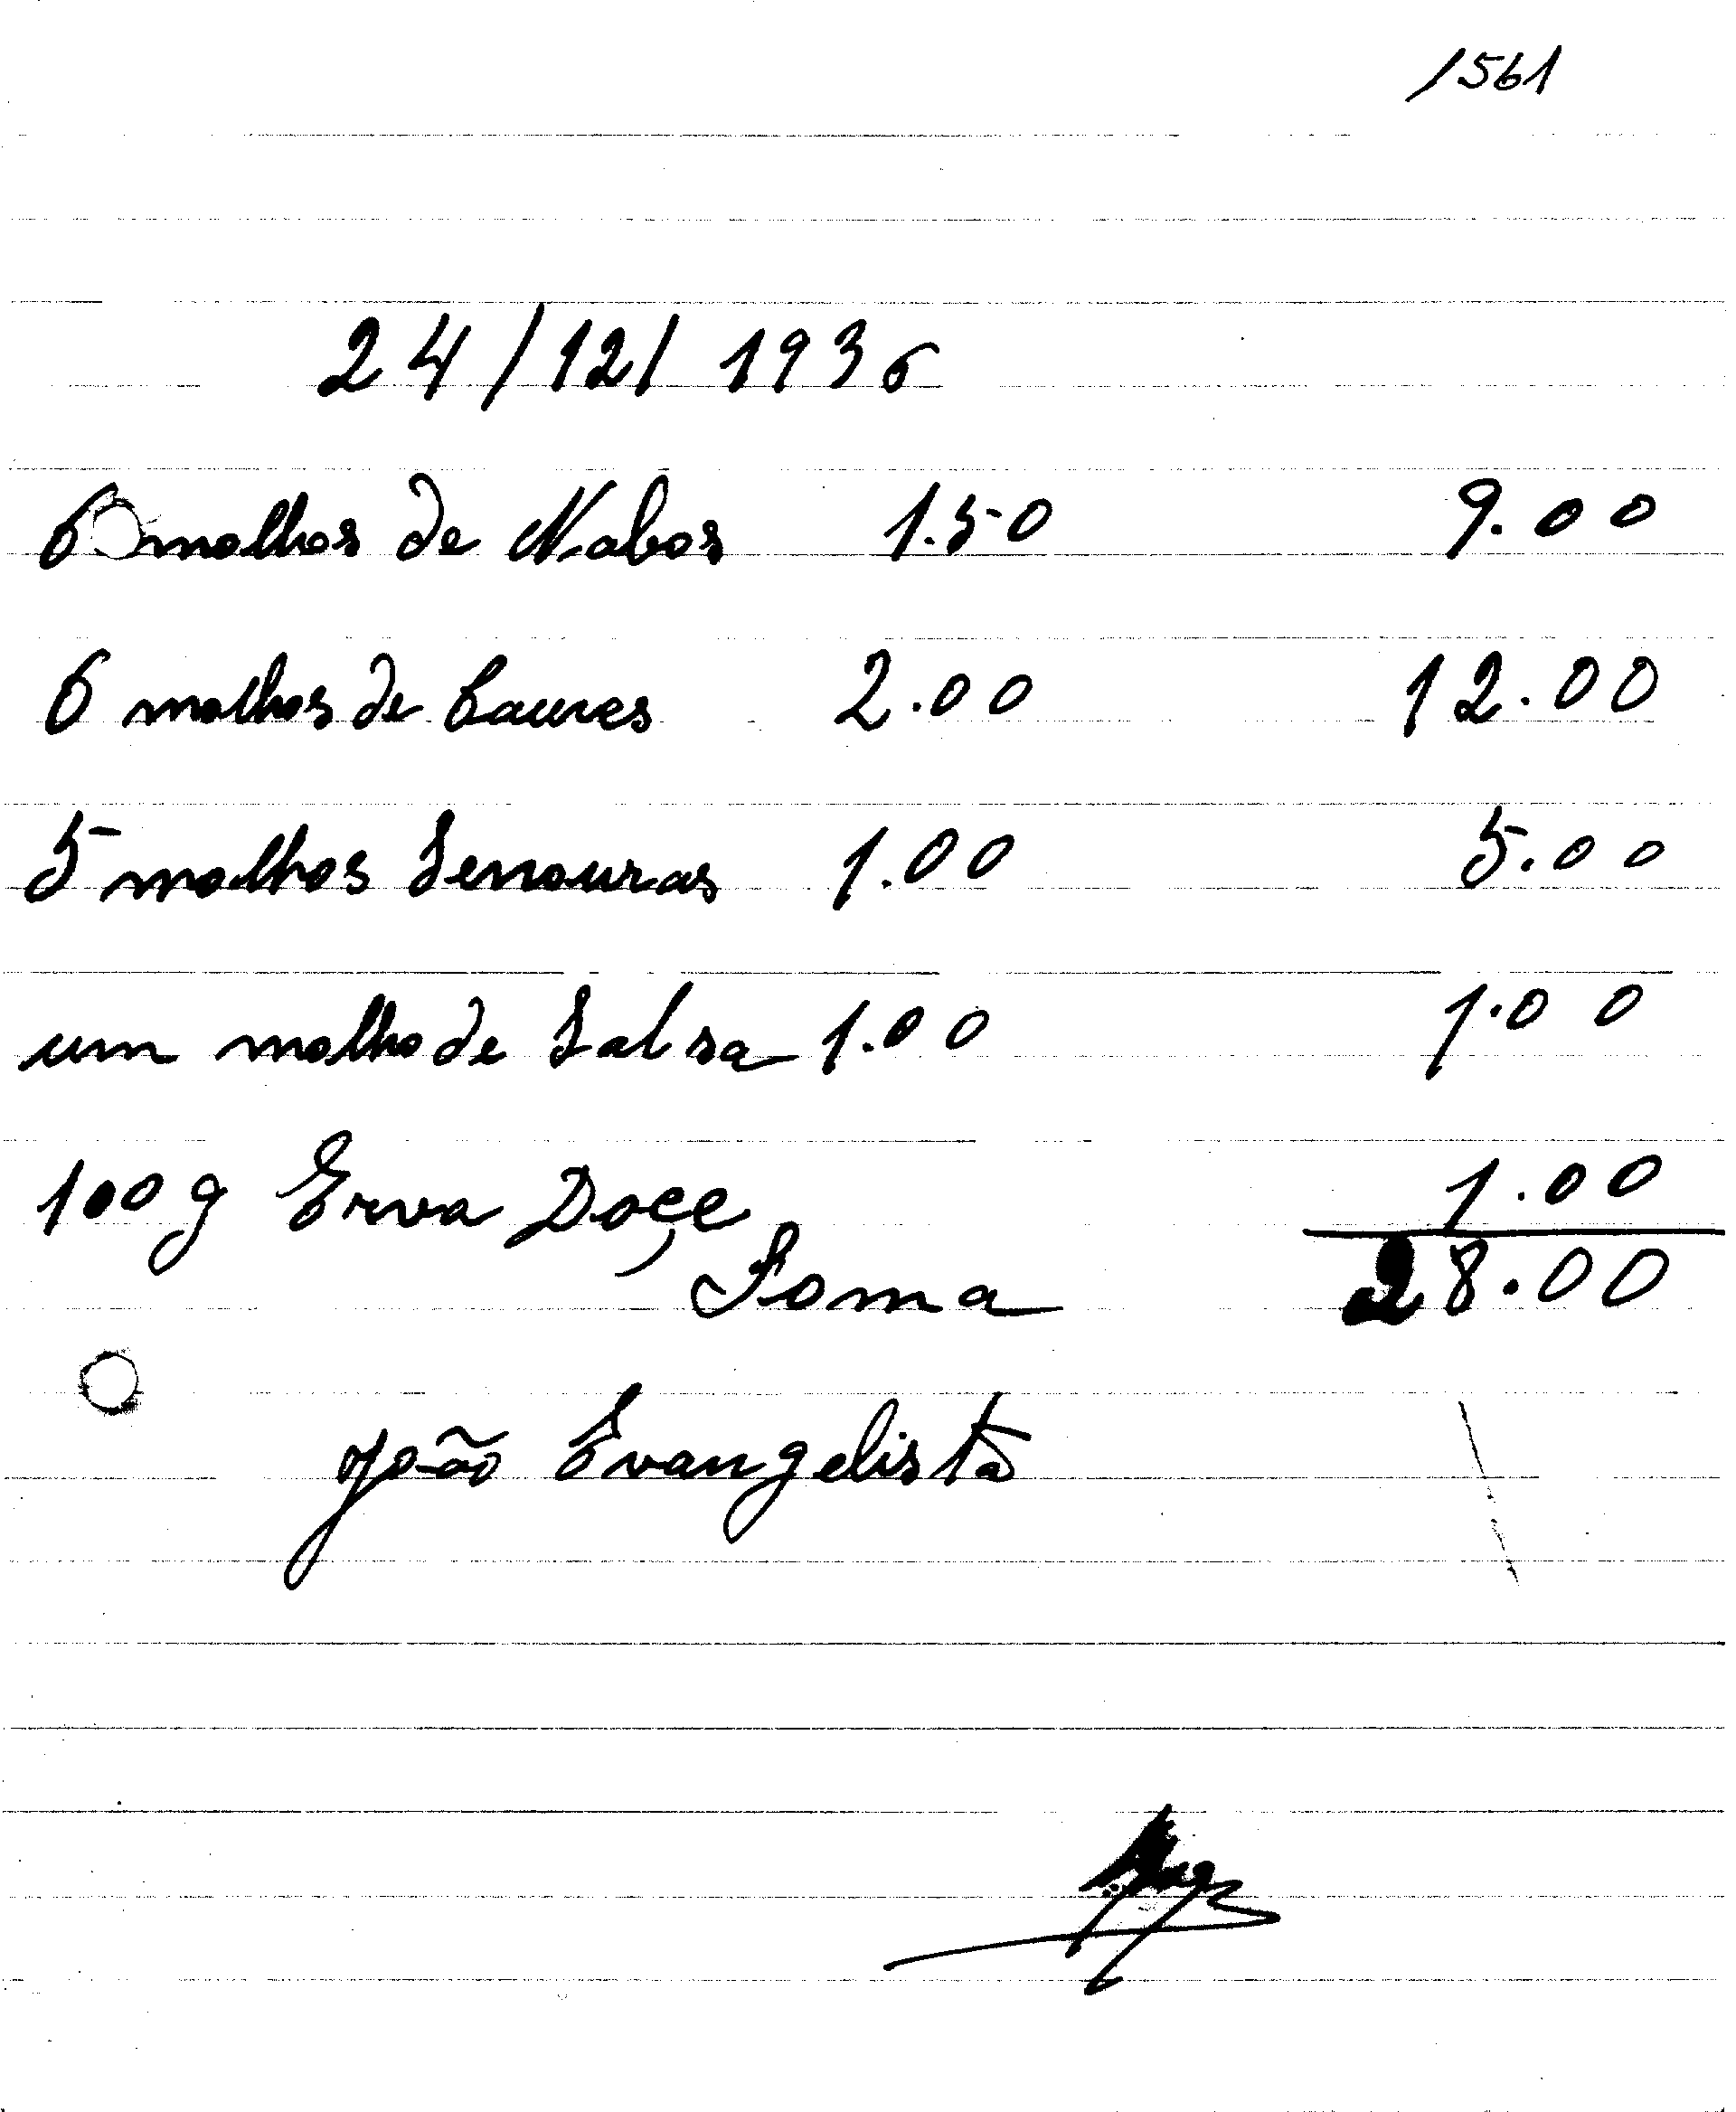 1561
24/12/1936
6 molhos de Nabos 1.50 9.00
6 molhos de Couves 2.00 12.00
5 molhos Senouras 1.00 5.00
um molho de Salsa 1.00 1.00
100 g Erva Doçe 1.00
Soma 28.00
João Evangelista